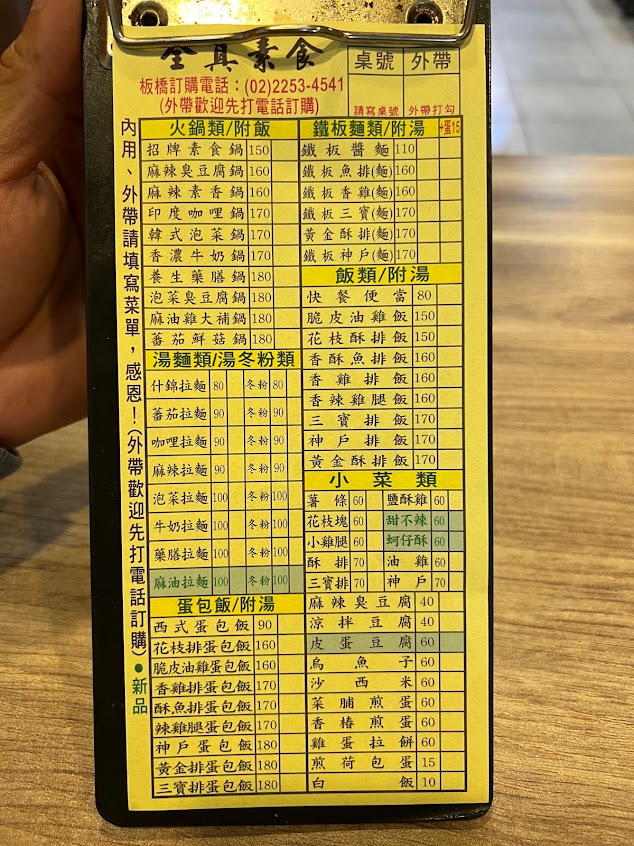 全真素食
桌號 外帶
板橋訂購電話：(02)2253-4541
(外帶歡迎先打電話訂購)
請寫桌號 外帶打勾
內用、外帶請填寫菜單，感恩！(外帶歡迎先打電話訂購)●新品
火鍋類/附飯
招牌素食鍋 150
麻辣臭豆腐鍋 160
麻辣素香鍋 160
印度咖哩鍋 170
韓式泡菜鍋 170
香濃牛奶鍋 170
養生藥膳鍋 180
泡菜臭豆腐鍋 180
麻油雞大補鍋 180
蕃茄鮮菇鍋 180
湯麵類/湯冬粉類
什錦拉麵 80 冬粉 80
蕃茄拉麵 90 冬粉 90
咖哩拉麵 90 冬粉 90
麻辣拉麵 90 冬粉 90
泡菜拉麵 100 冬粉 100
牛奶拉麵 100 冬粉 100
藥膳拉麵 100 冬粉 100
麻油拉麵 100 冬粉 100
蛋包飯/附湯
西式蛋包飯 90
花枝排蛋包飯 160
脆皮油雞蛋包飯 160
香雞排蛋包飯 170
酥魚排蛋包飯 170
辣雞腿蛋包飯 170
神戶蛋包飯 180
黃金排蛋包飯 180
三寶排蛋包飯 180
鐵板麵類/附湯 +蛋15
鐵板醬麵 110
鐵板魚排(麵) 160
鐵板香雞(麵) 160
鐵板三寶(麵) 170
黃金酥排(麵) 170
鐵板神戶(麵) 170
飯類/附湯
快餐便當 80
脆皮油雞飯 150
花枝酥排飯 150
香酥魚排飯 160
香雞排飯 160
香辣雞腿飯 160
三寶排飯 170
神戶排飯 170
黃金酥排飯 170
小菜類
薯條 60 鹽酥雞 60
花枝塊 60 甜不辣 60
小雞腿 60 蚵仔酥 60
酥排 70 油雞 60
三寶排 70 神戶 70
麻辣臭豆腐 40
涼拌豆腐 40
皮蛋豆腐 60
烏魚子 60
沙西米 60
菜脯煎蛋 60
香椿煎蛋 60
雞蛋拉餅 60
煎荷包蛋 15
白飯 10